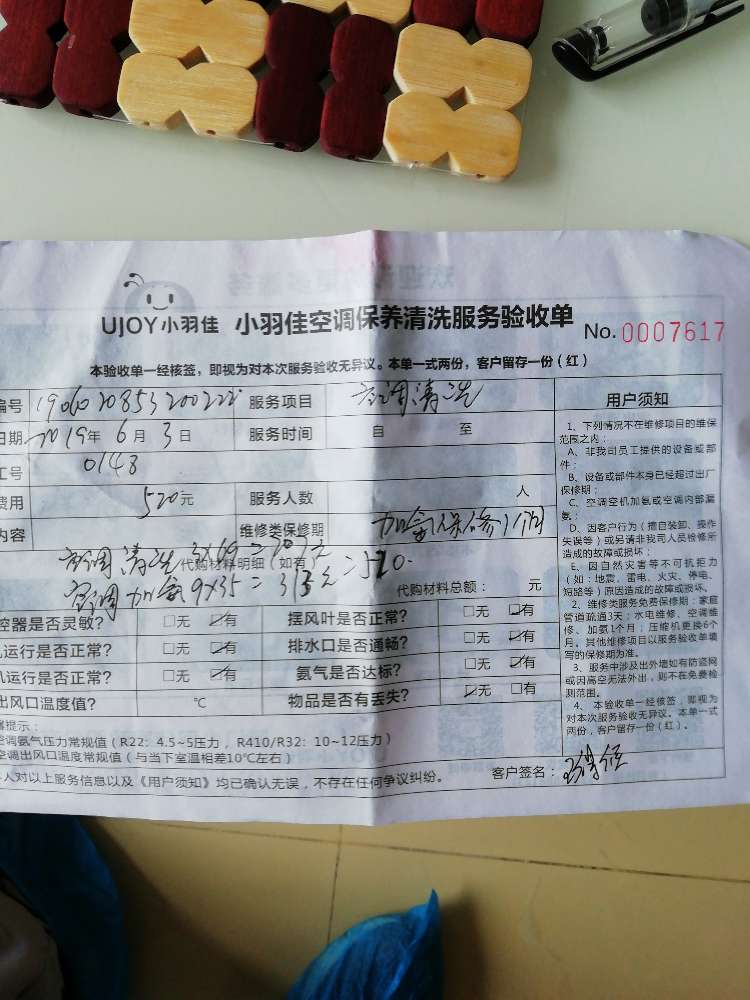 UJOY小羽佳 小羽佳空调保养清洗服务验收单 No.0007617
本验收单一经核签，即视为对本次服务验收无异议。本单一式两份，客户留存一份（红）
编号 服务项目 空调清洗 用户须知
日期 2019年 6月 3日 服务时间 自 至
工号 0148
费用 520元 服务人数 人
内容 维修类保修期 加氨保修1个月
空调清洗 3X69=207元
代购材料明细（如有）
空调加氨9X35=313元=520.
代购材料总额： 元
控器是否灵敏? □无 ☑有 摆风叶是否正常? □无 ☑有
机运行是否正常? □无 ☑有 排水口是否通畅? □无 ☑有
机运行是否正常? □无 ☑有 氨气是否达标? □无 ☑有
出风口温度值? ℃ 物品是否有丢失? ☑无 □有
提示：
空调氨气压力常规值（R22：4.5~5压力，R410/R32：10~12压力）
空调出风口温度常规值（与当下室温相差10℃左右）
本人对以上服务信息以及《用户须知》均已确认无误，不存在任何争议纠纷。 客户签名：
1、下列情况不在维修项目的维保
范围之内：
A、非我司员工提供的设备或部
件；
B、设备或部件本身已经超过出厂
保修期；
C、空调空机加氨或空调内部漏
氨；
D、因客户行为（擅自装卸、操作
失误等）或另请非我司人员检修所
造成的故障或损坏；
E、因自然灾害等不可抗拒力
（如：地震、雷电、火灾、停电、
短路等）原因造成的故障或损坏。
2、维修类服务免费保修期：家庭
管道疏通3天；水电维修、空调维
修、加氨1个月；压缩机更换6个
月。其他维修项目以服务验收单填
写的保修期为准。
3、服务中涉及出外墙如有防盗网
或因高空无法外出，则不在免费检
测范围。
4、本验收单一经核签，即视为
对本次服务验收无异议。本单一式
两份，客户留存一份（红）。